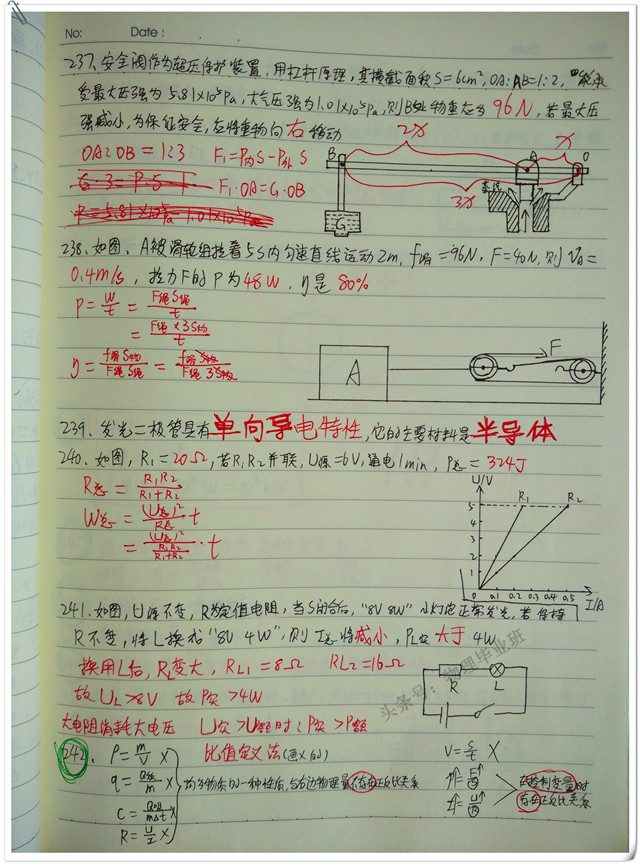 No:
Date:
237. 安全阀作为超压保护装置，用杠杆原理，其横截面积S=6cm²，OA:AB=1:2，能承
受最大压强为5.81×10⁵Pa，大气压强为1.01×10⁵Pa，则B处物重左为96N，若最大压
强减小，为保证安全，应将重物向右移动
OA:OB=1:3 F₁=P内S-P外S
G·3=P·S·1 F₁·OA=G·OB
P=5.81×10⁵Pa-1.01×10⁵Pa
2X
X
3X
B
A
O
G
238. 如图，A被滑轮组拉着5s内匀速直线运动2m，f滑=96N，F=40N，则VA=
0.4m/s，拉力F的P为48W，η是80%
P=W/t=F绳S绳/t
=F绳×3S物/t
η=f滑S物/F绳S绳=f滑S物/F绳3S物
A
F
239. 发光二极管具有单向导电特性，它的主要材料是半导体
240. 如图，R₁=20Ω，若R₁R₂并联，U源=6V，通电1min，P总=324J
R总=R₁R₂/R₁+R₂
W总=(U总)²/R总 t
=(U总)²/(R₁R₂/R₁+R₂)·t
U/V
R₁
R₂
5
4
3
2
1
0 0.1 0.2 0.3 0.4 0.5 I/A
241. 如图，U源不变，R为定值电阻，当S闭合后，"8V 8W"小灯泡正常发光，若保持
R不变，将L换成"8V 4W"，则I总将减小，PL实大于4W
换用L后，RL变大，RL1=8Ω RL2=16Ω
故UL>8V 故P实>4W
大电阻消耗大电压 U实>U额时：P实>P额
R
L
头条号：物理毕业班
242. ρ=m/V × 比值定义法(定义的) V=S/t ×
q=Q放/m ×
均为物质的一种性质，与右边物理量不存在正反比关系
在控制变量时
存在正反比关系
C=Q吸/mΔt ×
R=U/I ×